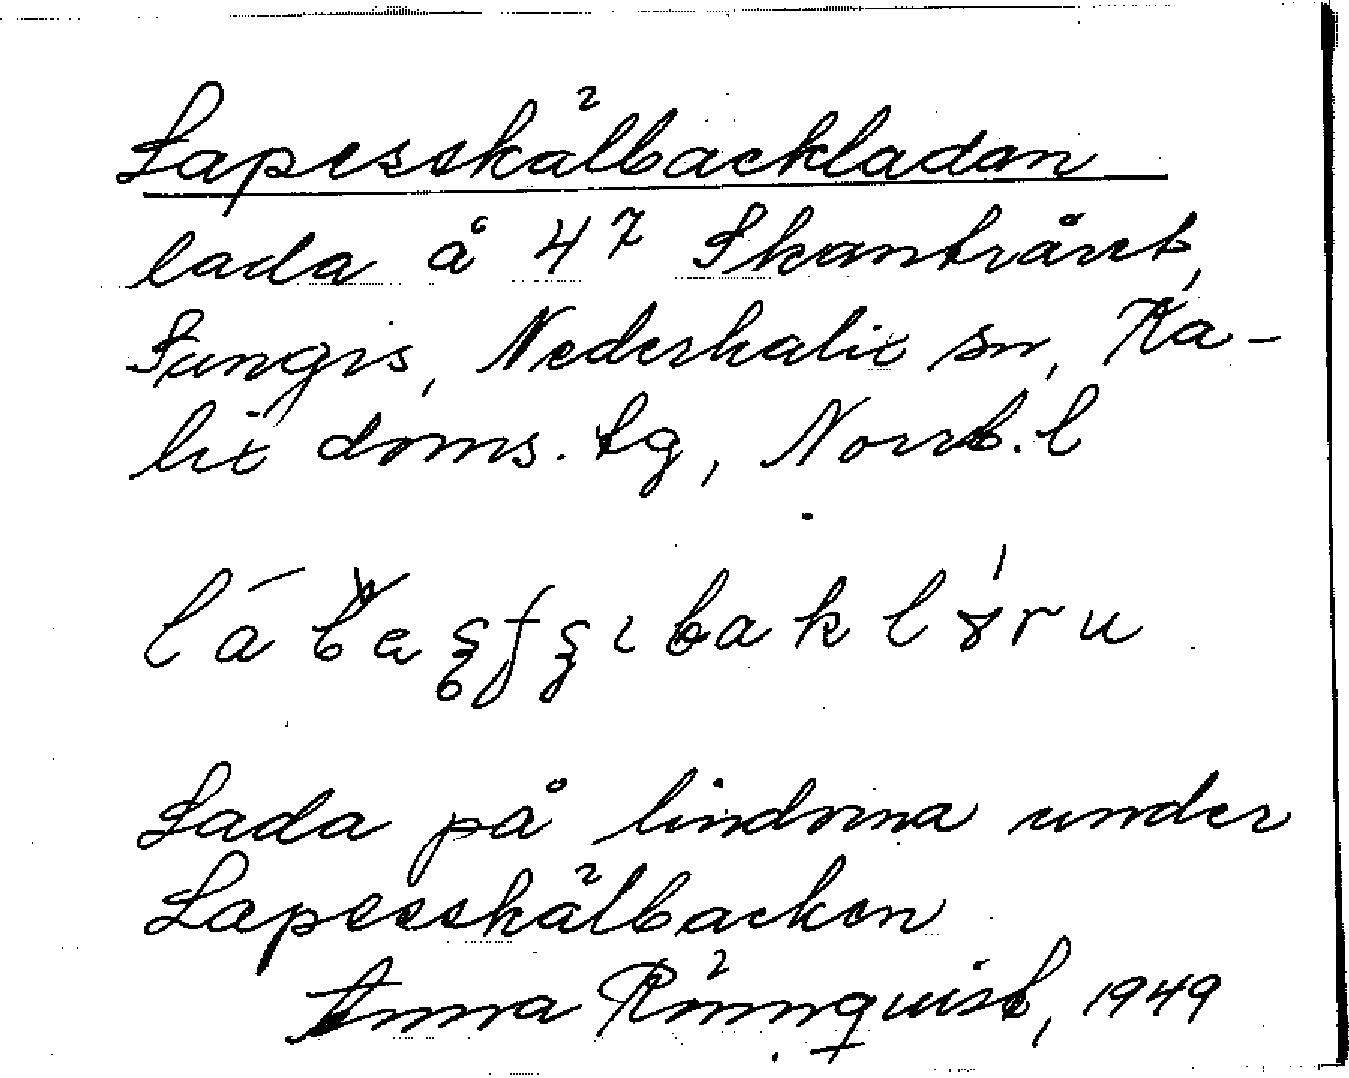 Lapesskälbackladan
lada å 47 Skanträsket,
Fungis, Nederkalix sn, Ka-
lix doms. tg, Norrb. l
Lada på lindorna under
Lapesskälbacken
Anna Rönnquist, 1949